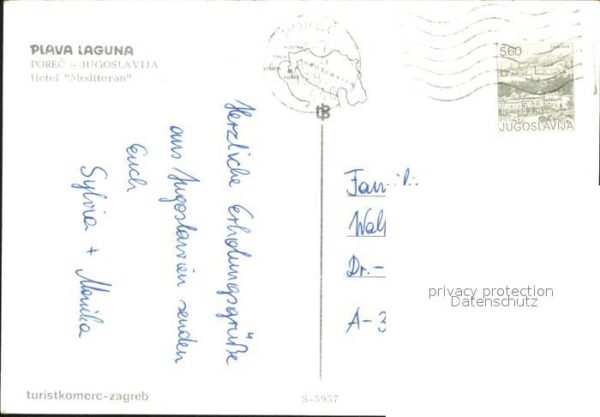 PLAVA LAGUNA
POREČ – JUGOSLAVIJA
Hotel "Mediteran"
POREČ
JUGOSLAVIJA
5,60
JUGOSLAVIJA
Herzliche Erholungsgrüße
aus Jugoslawien senden
Euch
Sylvia + Monika
Fam
Wal
Dr.-
A-3
privacy protection
Datenschutz
turistkomerc-zagreb
S-5957